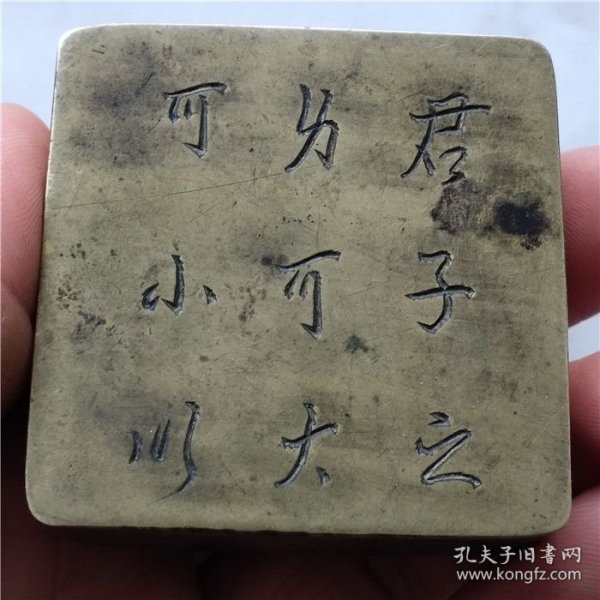 君子之
为可大
可小
孔夫子旧書网
www.kongfz.com